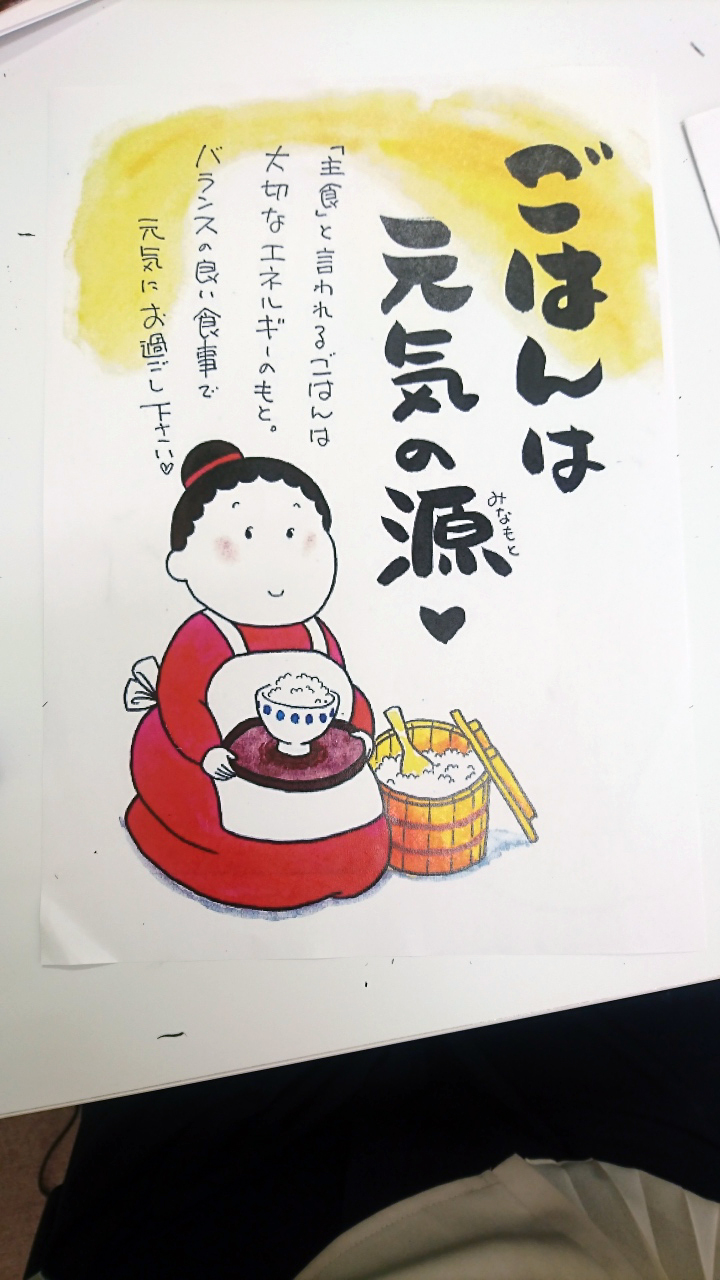 ごはんは
元気の源♥
みなもと
「主食」と言われるごはんは
大切なエネルギーのもと。
バランスの良い食事で
元気にお過ごし下さい♡